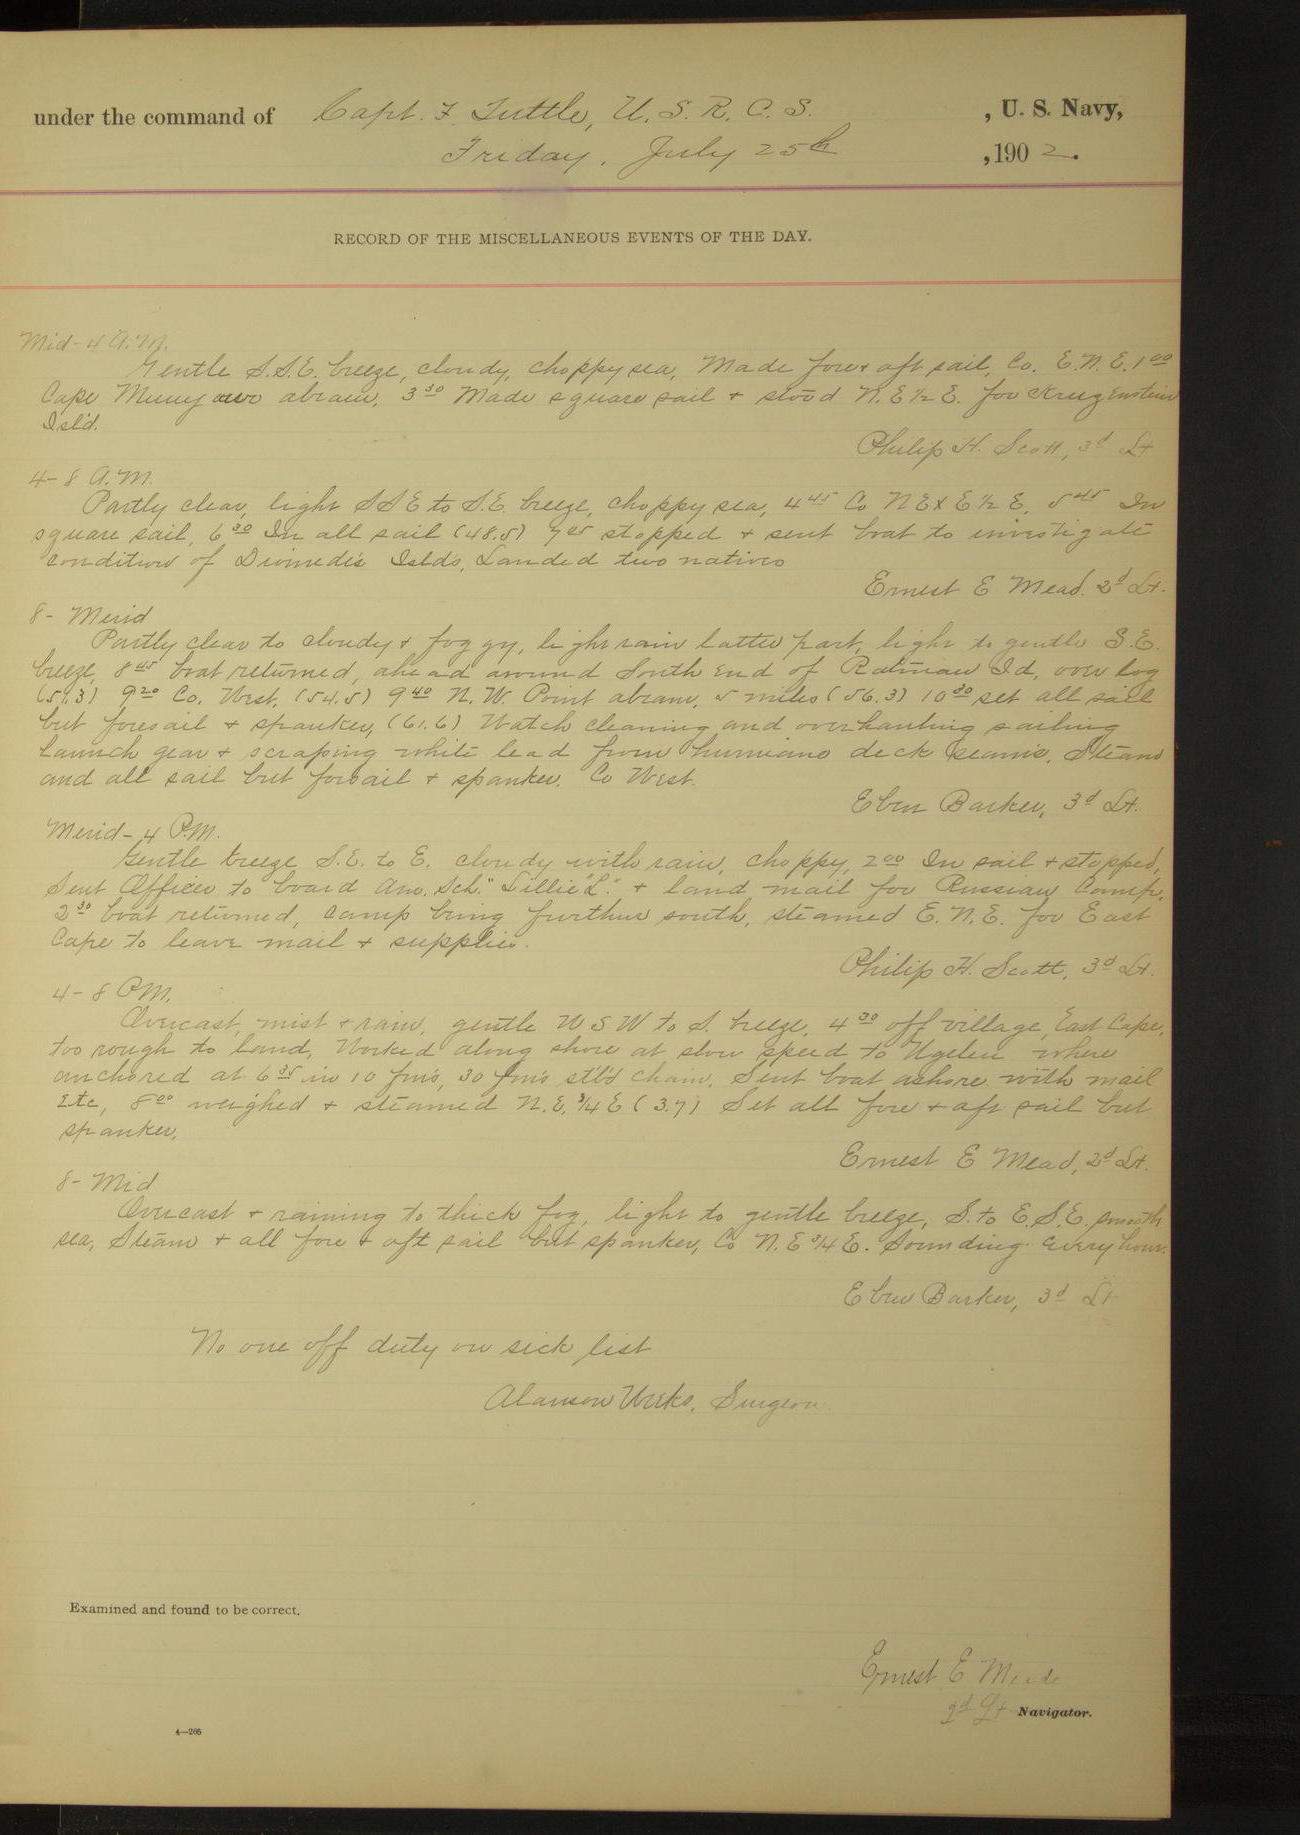 under the command of Capt. F. Tuttle, U. S. R. C. S. , U. S. Navy,
Friday, July 25th ,1902.
RECORD OF THE MISCELLANEOUS EVENTS OF THE DAY.
Mid-4 A.M.
Gentle S.S.E. breeze, cloudy, choppy sea, Made fore & aft sail, Co. E.N.E. 1 00
Cape abeam, 3 30 Made square sail & stood N.E ½ E. for Kruzenstein
Isl'd.
Philip H. Scott, 3d Lt
4-8 A.M.
Partly clear, light S S E to S.E. breeze, choppy sea, 4 45 Co N E x E ½ E, 5 45 In
square sail, 6 30 In all sail (48.5) stopped & sent boat to investigate
condition of Diomedes Islds, Landed two natives
Ernest E Mead. 2d Lt.
8- Merid
Partly clear to cloudy & foggy, light rain latter part, light to gentle S.E.
breeze, 8 45 boat returned, ahead around South end of Ratmanaw Id, over log
(51.3) 9 20 Co. West, (54.5) 9 40 N.W. Point abeam, 5 miles (56.3) 10 30 set all sail
but foresail & spanker, (61.6) Watch cleaning and overhauling sailing
launch gear & scraping white lead from hurricane deck seams. Steam
and all sail but foresail & spanker. Co West.
Eben Barker, 3d Lt.
Merid-4 P.M.
Gentle breeze S.E. to E. cloudy with rain, choppy, 2 00 In sail & stopped,
Sent Officer to board Am. Sch. "Lillie L." & land mail for Russian Camp,
2 30 boat returned, camp being further south, steamed E.N.E. for East
Cape to leave mail & supplies.
Philip H. Scott, 3d Lt.
4-8 P.M.
Overcast, mist & rain, gentle W S W to S. breeze, 4 30 off village, East Cape,
too rough to land, Worked along shore at slow speed to Ugelen where
anchored at 6 35 in 10 fms, 30 fms stb'd chain, Sent boat ashore with mail
Etc, 8 00 weighed & steamed N.E. ¾ E (3.7) Set all fore & aft sail but
spanker.
Ernest E Mead, 2d Lt.
8- Mid
Overcast & raining to thick fog, light to gentle breeze, S. to E.S.E. smooth
sea, Steam & all fore & aft sail but spanker, Co N.E ¾ E. Sounding every hour.
Eben Barker, 3d Lt
No one off duty on sick list
Alanson Weeks, Surgeon.
Examined and found to be correct.
Ernest E Meade
2d Lt Navigator.
4—205